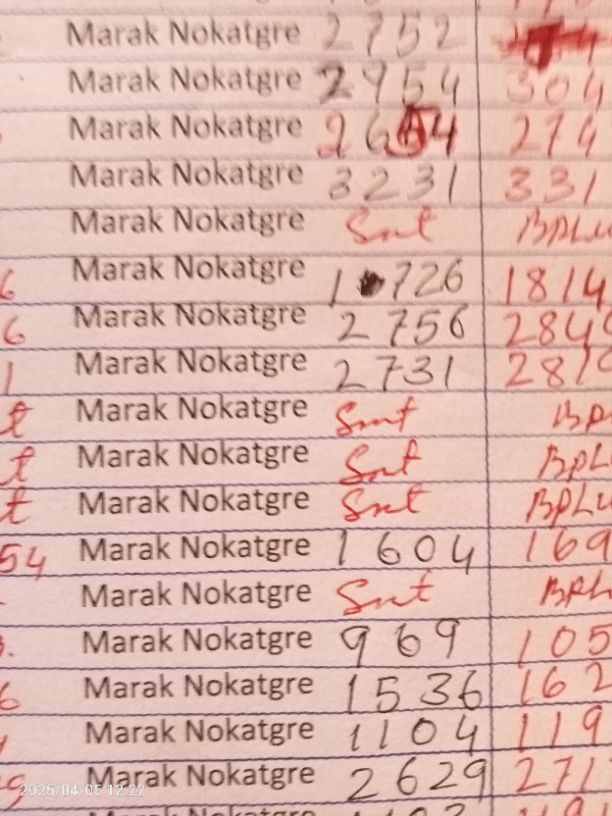 Marak Nokatgre 2752
Marak Nokatgre 2954 304
Marak Nokatgre 274
Marak Nokatgre 3231 331
Marak Nokatgre Smt BPLU
6 Marak Nokatgre 1 726 1814
6 Marak Nokatgre 2756 284
1 Marak Nokatgre 2731 281
t Marak Nokatgre Smt BP
t Marak Nokatgre Smt BPLU
t Marak Nokatgre Smt BPLU
54 Marak Nokatgre 1604 169
Marak Nokatgre Smt BPL
Marak Nokatgre 969 105
6 Marak Nokatgre 1536 162
Marak Nokatgre 1104 119
Marak Nokatgre 2629 271
2025/04/05 12:22
Marak Nokatgre